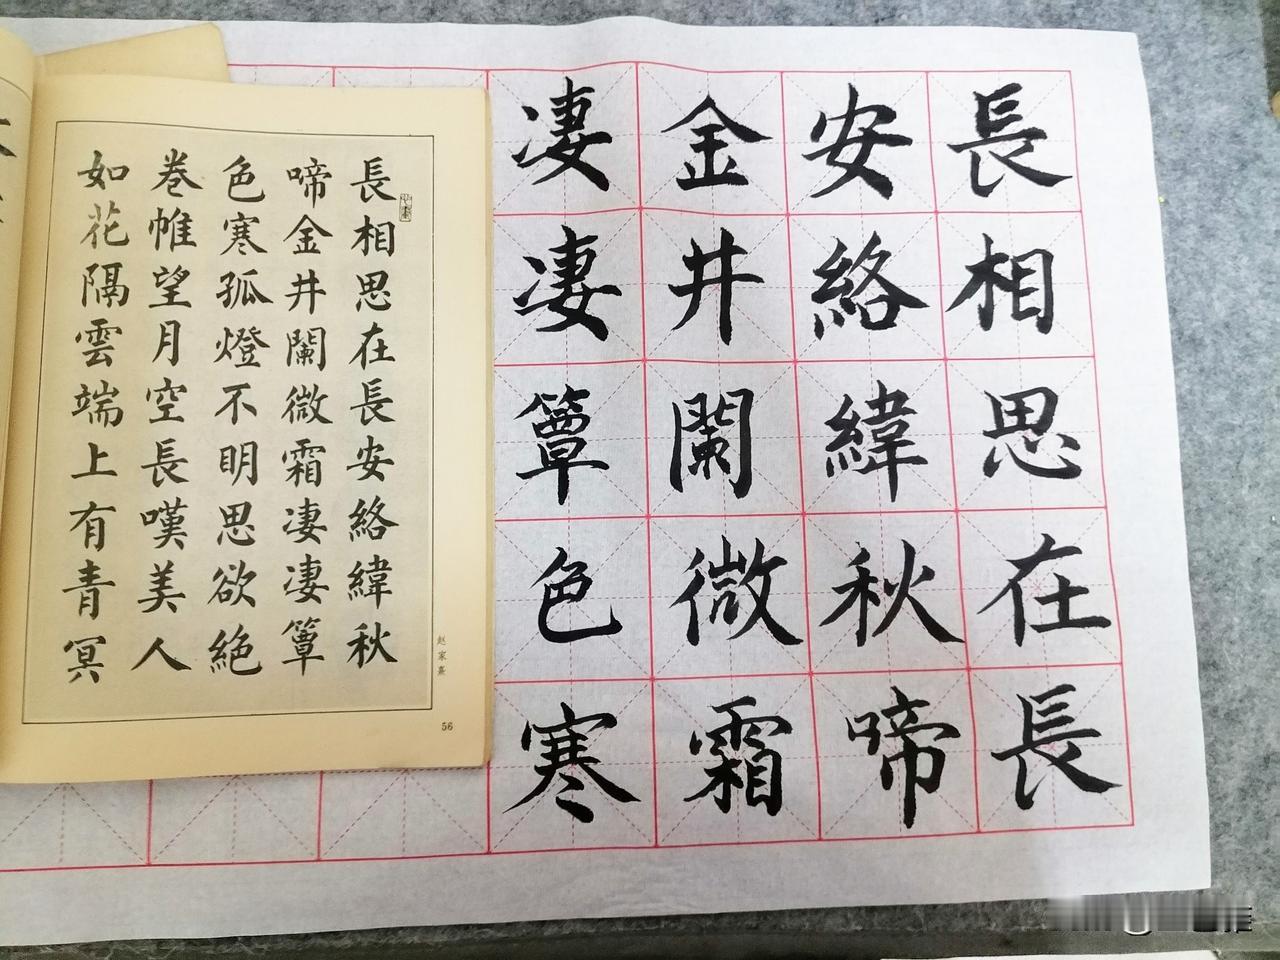 長相思在長
安絡緯秋啼
金井闌微霜
凄凄簟色寒
長相思在長安絡緯秋
啼金井闌微霜凄凄簟
色寒孤燈不明思欲絶
卷帷望月空長嘆美人
如花隔雲端上有青冥
赵家熹
56